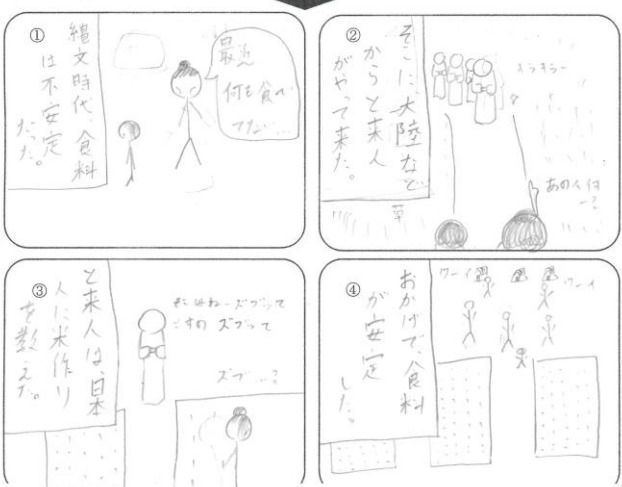 ①
縄文時代、食料
は不安定
だった。
最近
何も食べ
てない…
②
そこに大陸など
からと来人
がやって来た。
キラキラー
あの人何
ー?
草
③
と来人は、日本
人に米作り
を教えた。
ズブッて
ズブッて
ズブ…?
④
おかげで、食料
が安定
した。
ワーイ
ワーイ